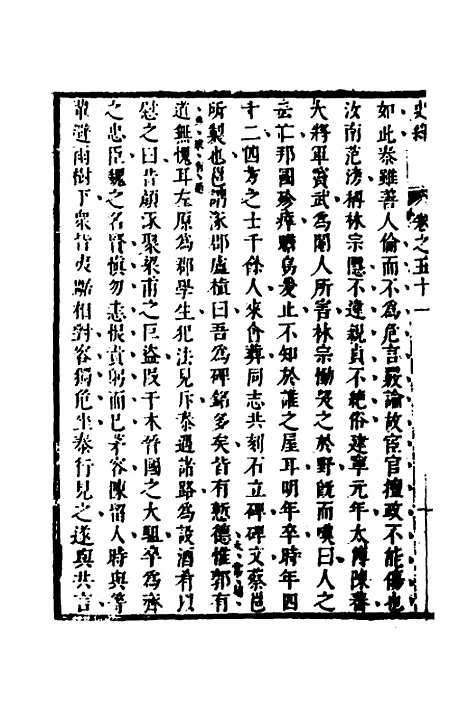 史緯 卷之五十一
如此泰雖善人倫而不為危言覈論故宦官擅政不能傷也
汝南范滂稱林宗隱不違親貞不絕俗建寧元年太傅陳蕃
大將軍竇武為閹人所害林宗慟哭之於野既而嘆曰人之
云亡邦國殄瘁瞻烏爰止不知於誰之屋耳明年卒時年四
十二四方之士千餘人來會葬同志共刻石立碑碑文蔡邕
所製也邕謂涿郡盧植曰吾為碑銘多矣皆有慙德惟郭有
道無愧耳左原為郡學生犯法見斥泰遇諸路為設酒肴以
慰之曰昔顏涿聚梁甫之巨盜段干木晉國之大駔卒為齊
之忠臣魏之名賢慎勿恚恨責躬而已茅容陳留人時與等
輩避雨樹下眾皆夷踞相對容獨危坐泰行見之遂與共言